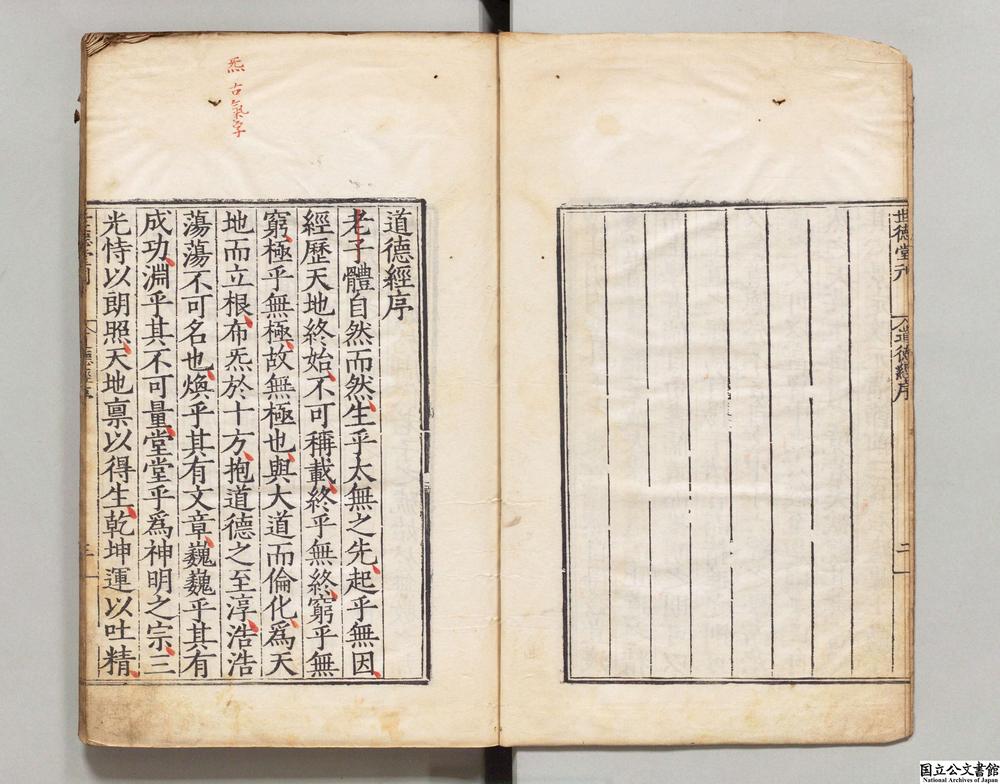 世德堂刊
道德經序
二
炁古氣字
道德經序
老子體自然而然生乎太無之先起乎無因
經歷天地終始不可稱載終乎無終窮乎無
窮極乎無極故無極也與大道而倫化爲天
地而立根布炁於十方抱道德之至淳浩浩
蕩蕩不可名也煥乎其有文章巍巍乎其有
成功淵乎其不可量堂堂乎爲神明之宗三
光恃以朗照天地禀以得生乾坤運以吐精
国立公文書館
National Archives of Japan